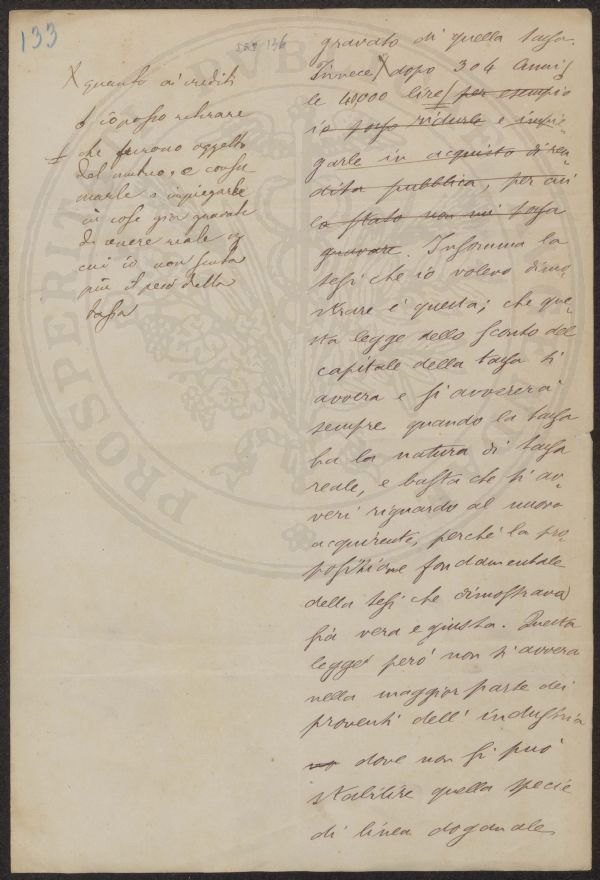 133
134
X quanto ai crediti
io posso ritirare
che furono oggetto
del mutuo, e consu-
marle o impiegarle
in cose già gravate
di onere reale
cui io non senta
più il peso della
tassa
gravato di quella tassa.
Invece X dopo 3 o 4 anni,
le 40000 lire per esempio
io posso ridurle e impie-
garle in acquisto di ren-
dita pubblica, per cui
lo Stato non mi possa
gravare. Insomma la
tesi che io volevo dimo-
strare è questa; che que-
sta legge dello sconto del
capitale della tassa si
avvera e si avvererà
sempre quando la tassa
ha la natura di tassa
reale, e basta che si av-
veri riguardo al nuovo
acquirente, perché la pro-
posizione fondamentale
della tesi che dimostrava
sia vera e giusta. Questa
legge però non si avvera
nella maggior parte dei
proventi dell' industria
no dove non si può
stabilire quella specie
di linea doganale
PROSPERUM